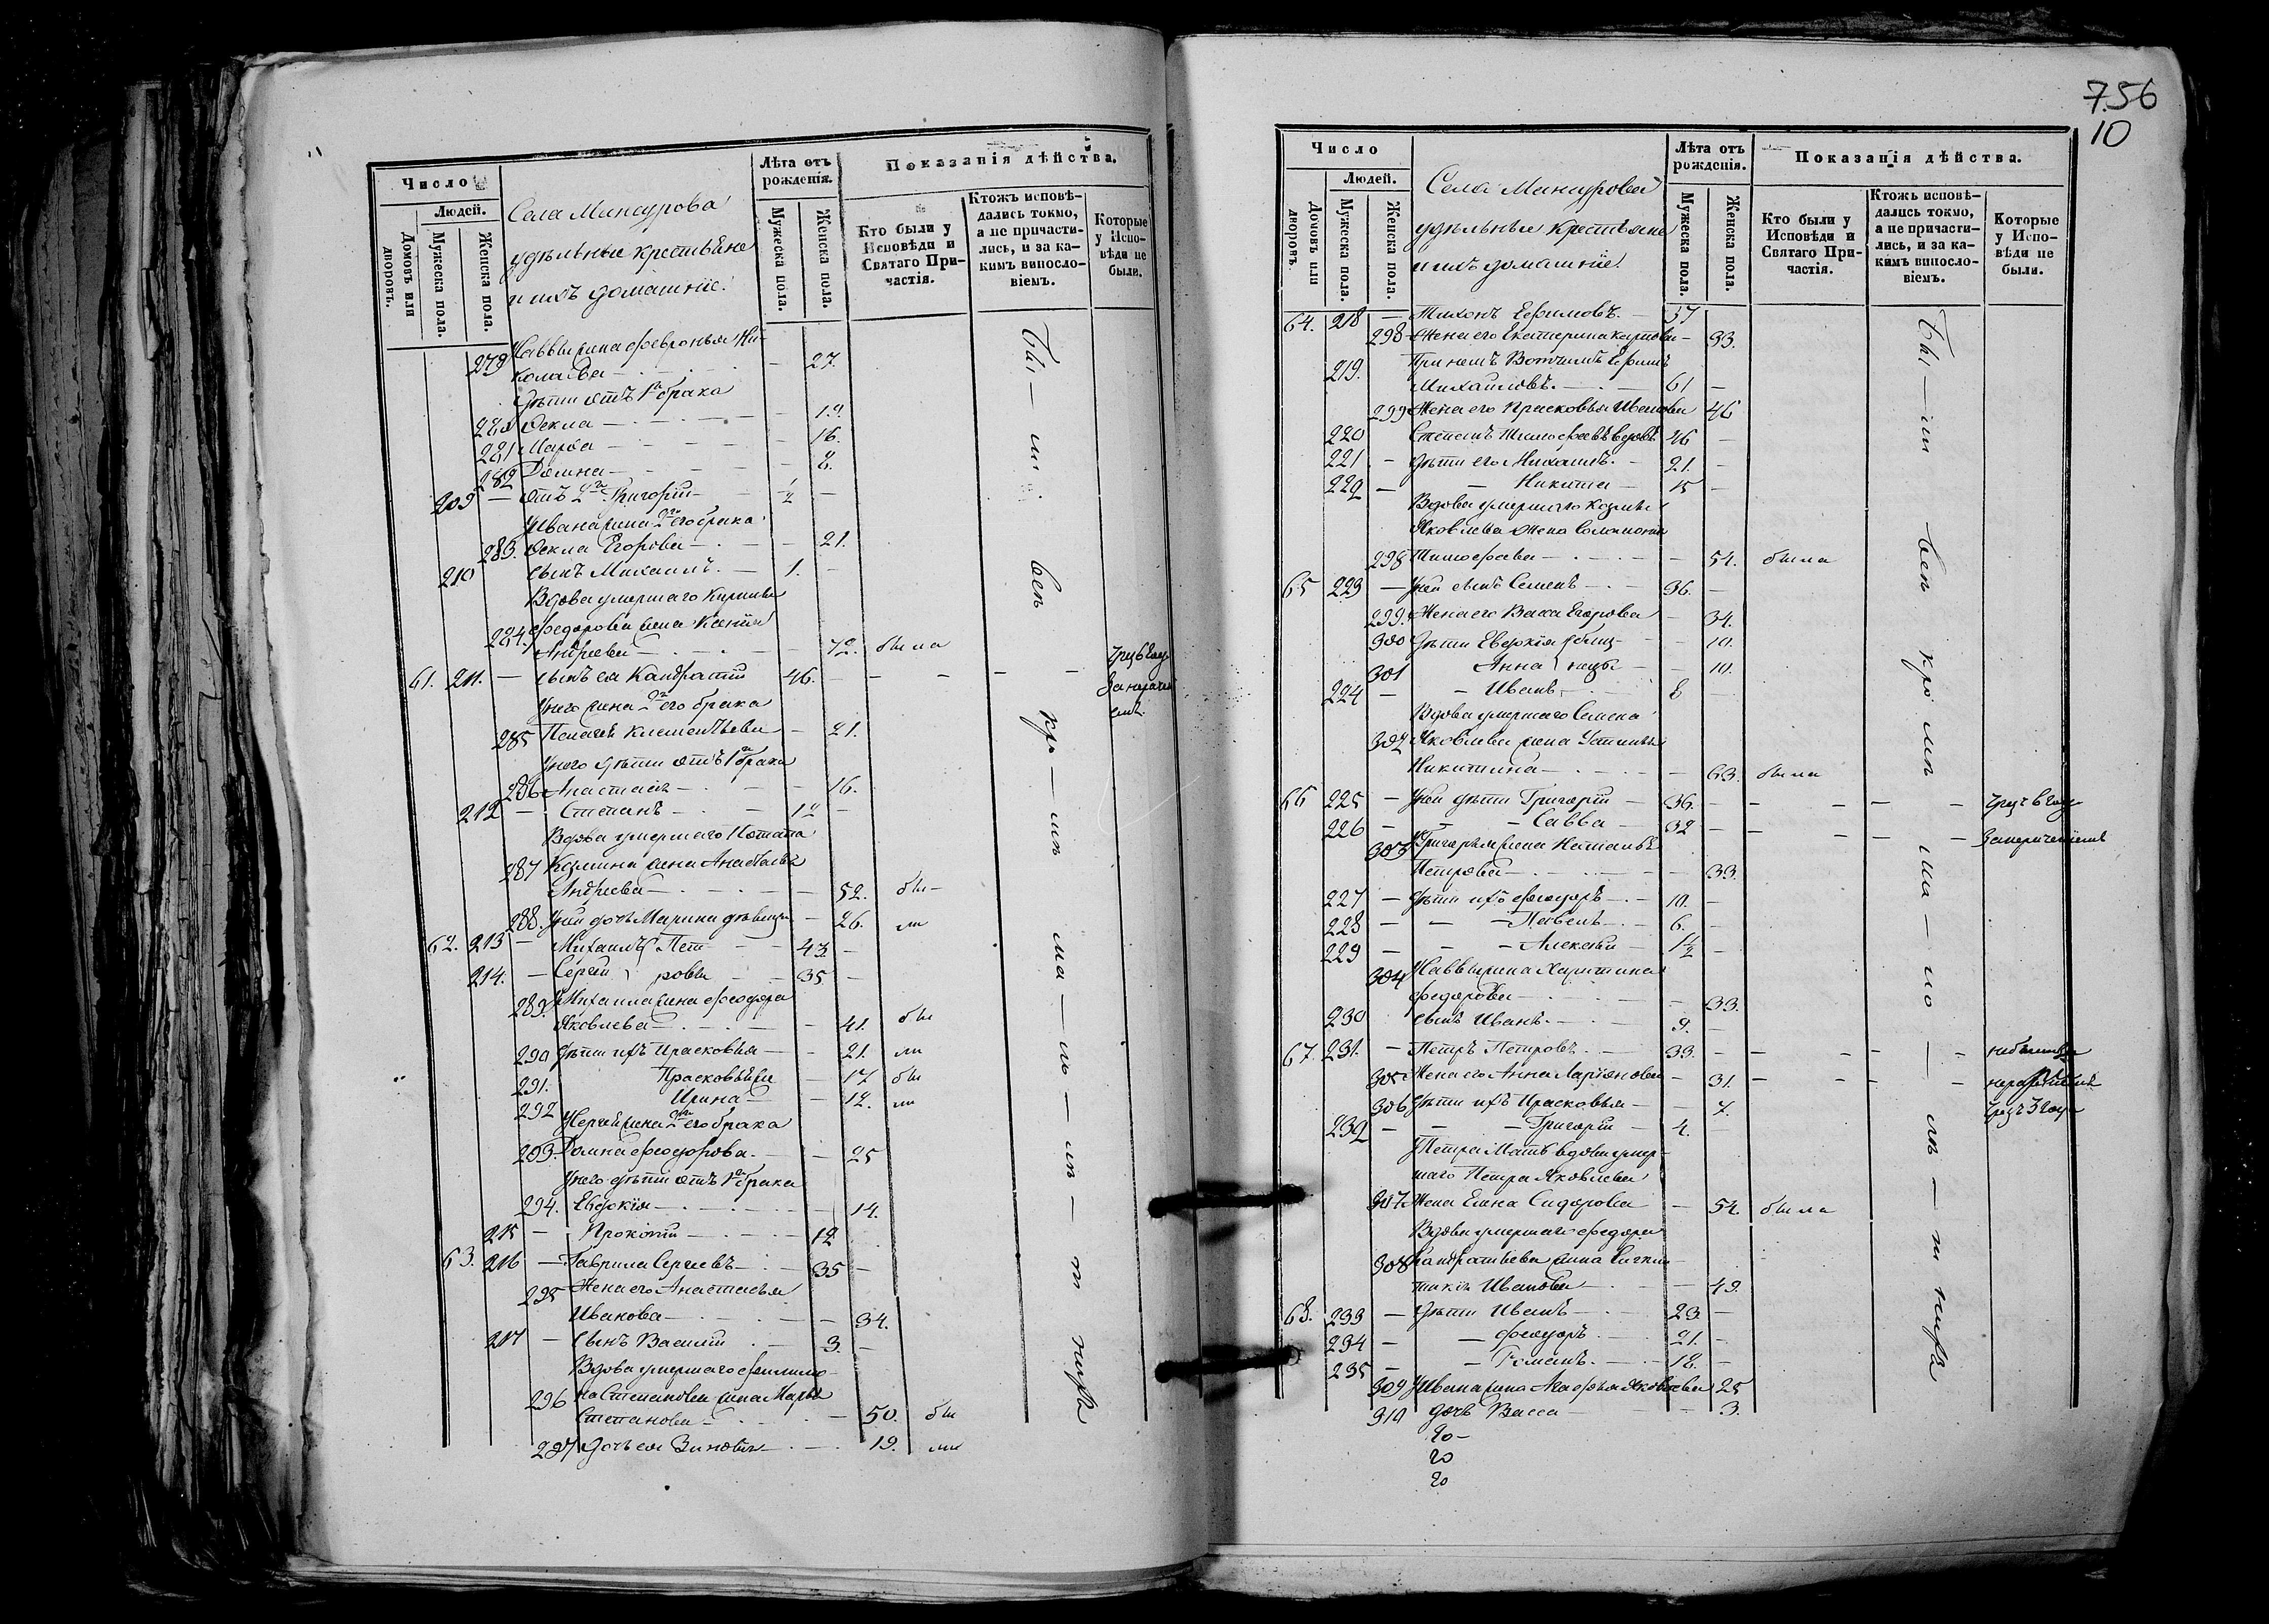 Число
Людей.
Домовъ или дворовъ.
Мужеска пола.
Женска пола.
Села Мансурова
удѣльные крестьяне
и ихъ домашніе.
Лѣта отъ рожденія.
Мужеска пола.
Женска пола.
Показанія дѣйства.
Кто были у Исповѣди и Святаго Причастія.
Ктожъ исповѣдались токмо, а не причастились, и за какимъ винословіемъ.
Которые у Исповѣди не были.
279 Саввы жена Февронья Ни-
колаева — 27.
Дѣти отъ 1го брака
280 Фекла — 19.
281 Марѳа — 16.
282 Домна — 8.
209 — отъ 2го Григорій — 1/2 —
Ивана жена 2го его брака
283. Фекла Егорова — 21.
210 сынъ Михаилъ. — 1. —
Вдова умершаго
284. Федорова жена
Андреева — 72. была
61. 211. — сынъ ея Кандратій 46. —
У него жена 2го его брака
285 Пелагея Климентьева — 21.
У него дѣти отъ 1го брака
286 Анастасія — 16.
212 — Степанъ — 12
Вдова умершаго Потапа
287 Козмина жена
Андреева — 52. бы-
288. У ней дочь Марина дѣвица — 26. ли
62. 213 — Михаилъ Пет- 43. —
214. — Сергій ровы 35 —
289. Михаила жена Феодора
Яковлева — 41. бы
290 Дѣти ихъ Прасковья — 21. ли
291. Прасковья — 17 бы
292 Ирина — 12. ли
Сергѣя жена 2го его брака
293. Домна Феодорова. — 25
У него дѣти отъ 1го брака
294. Евдокія — 14.
215 — Прокопій — 12
63. 216 — Гаврила Сергеевъ — 35 —
295 Жена его Анастасья
Иванова — 34.
217 — сынъ Василій — 3. —
Вдова умершаго Филимо-
296 на Степанова жена Марья
Степанова — 50. бы
297 Дочь ея Зиновья — 19. ли
756
10
Число
Людей.
Домовъ или дворовъ.
Мужеска пола.
Женска пола.
Села Мансурова
удѣльные крестьяне
и ихъ домашніе.
Лѣта отъ рожденія.
Мужеска пола.
Женска пола.
Показанія дѣйства.
Кто были у Исповѣди и Святаго Причастія.
Ктожъ исповѣдались токмо, а не причастились, и за какимъ винословіемъ.
Которые у Исповѣди не были.
64. 218 — Тихонъ Ефимовъ. — 37
298 Жена его Екатерина Карпова — 33.
При немъ Вотчимъ Ефимъ
219. Михаиловъ. — 61 —
299 Жена его Прасковья Иванова 46
220 Степанъ Тимофеевъ вдовъ 46 —
221 — Дѣти его Михаилъ. — 21. —
222 — Никита — 15 —
Вдова умершаго Козмы
Яковлева жена Соломонія
298 Тимофеева — 54. была
65 223 — У ней сынъ Семенъ — 36. —
299. Жена его Васса Егорова — 34.
300 Дѣти Евдокія близ- — 10.
301 Анна нецы — 10.
224 — Иванъ — 8 —
Вдова умершаго Семена
302 Яковлева жена Устинья
Никитина — 63. была
66 225 — У ней дѣти Григорій — 36. —
226 — Савва — 32 —
303 Григорья жена Наталья
Петрова — 33.
227 — Дѣти ихъ Феодоръ — 10. —
228 — Павелъ — 6. —
229 — Алексѣй — 1 1/2 —
304 Саввы жена Харитина
Федорова — 33.
230 сынъ Иванъ. — 9. —
67. 231. — Петръ Петровъ. — 33. —
305 Жена его Анна Маркянова — 31.
306 Дѣти ихъ Прасковья — 7.
232 — Григорій — 4. —
Петра Мать вдова умер-
шаго Петра Яковлева
307 Жена Елена Сидорова — 54. была
Вдова умершаго Федора
308 Кандратьева жена
Иванова — 49.
68. 233 — Дѣти Иванъ — 23 —
234 — Феодоръ — 21. —
235 — Романъ. — 18. —
309 У Ивана жена Агафья Яковлева 25
310 дочь Васса — 3.
20 —
20
20